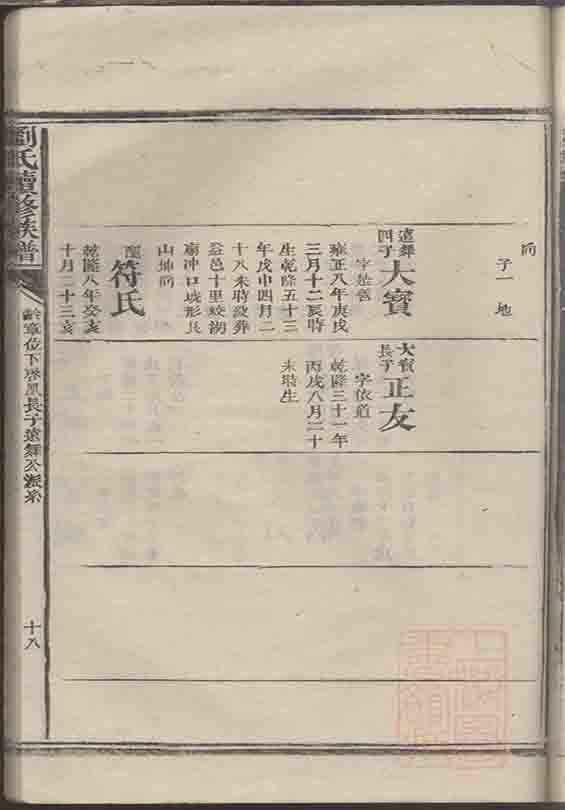 向
子一 地
遠舞四子 大寳
字
雍正八年庚戌
三月十二亥時
生乾隆五十三
年戊申四月二
十八未時歿葬
益邑十里
廟冲口 形艮
山坤向
配 符氏
乾隆八年癸亥
十月二十三亥
大寳長子 正友
字依道
乾隆三十一年
丙戌八月二十
未時生
劉氏續修族譜
齡章位下 長子遠舞公派系
十八
上海圖書館藏